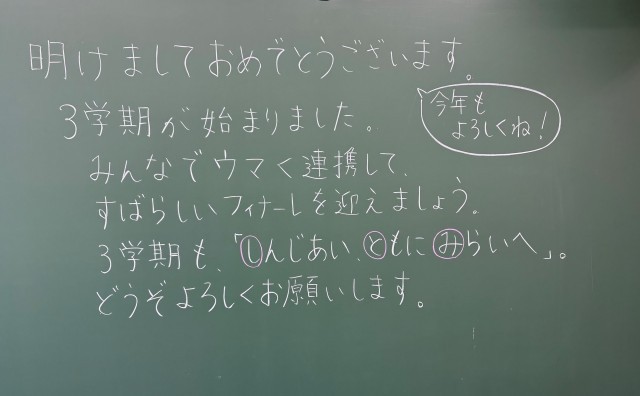 明けましておめでとうございます。
今年も
よろしくね!
3学期が始まりました。
みんなでウマく連携して、
すばらしいフィナーレを迎えましょう。
3学期も、「しんじあい、ともにみらいへ」。
どうぞよろしくお願いします。